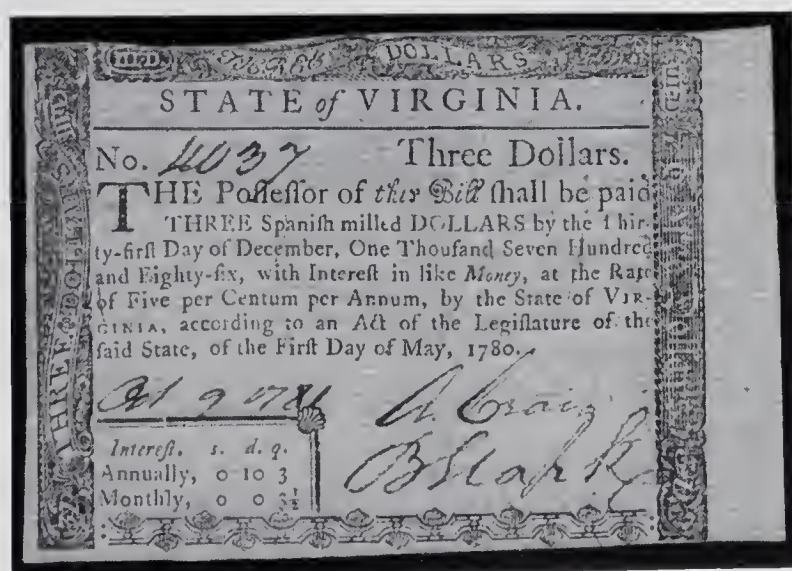 III.D. THREE DOLLARS
STATE of VIRGINIA.
No. 4037 Three Dollars.
THE Poſſeſſor of this Bill ſhall be paid
THREE Spaniſh milled DOLLARS by the Thir-
ty-firſt Day of December, One Thouſand Seven Hundred
and Eighty-ſix, with Intereſt in like Money, at the Rate
of Five per Centum per Annum, by the State of VIR-
GINIA, according to an Act of the Legiſlature of the
ſaid State, of the Firſt Day of May, 1780.
Oct 9 1781
A Craig
Intereſt. s. d. q.
Annually, 0 10 3
Monthly, 0 0 3½
THREE DOLLARS